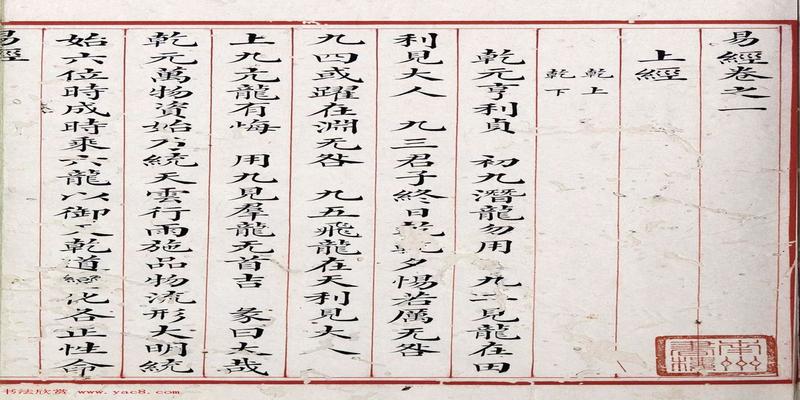 易經卷之一
上經
乾上
乾下
乾元亨利貞 初九潛龍勿用 九二見龍在田
利見大人 九三君子終日乾乾夕惕若厲无咎
九四或躍在淵无咎 九五飛龍在天利見大人
上九亢龍有悔 用九見羣龍无首吉 彖曰大哉
乾元萬物資始乃統天雲行雨施品物流形大明統
始六位時成時乘六龍以御天乾道變化各正性命
易經
书法欣赏 www.yac8.com